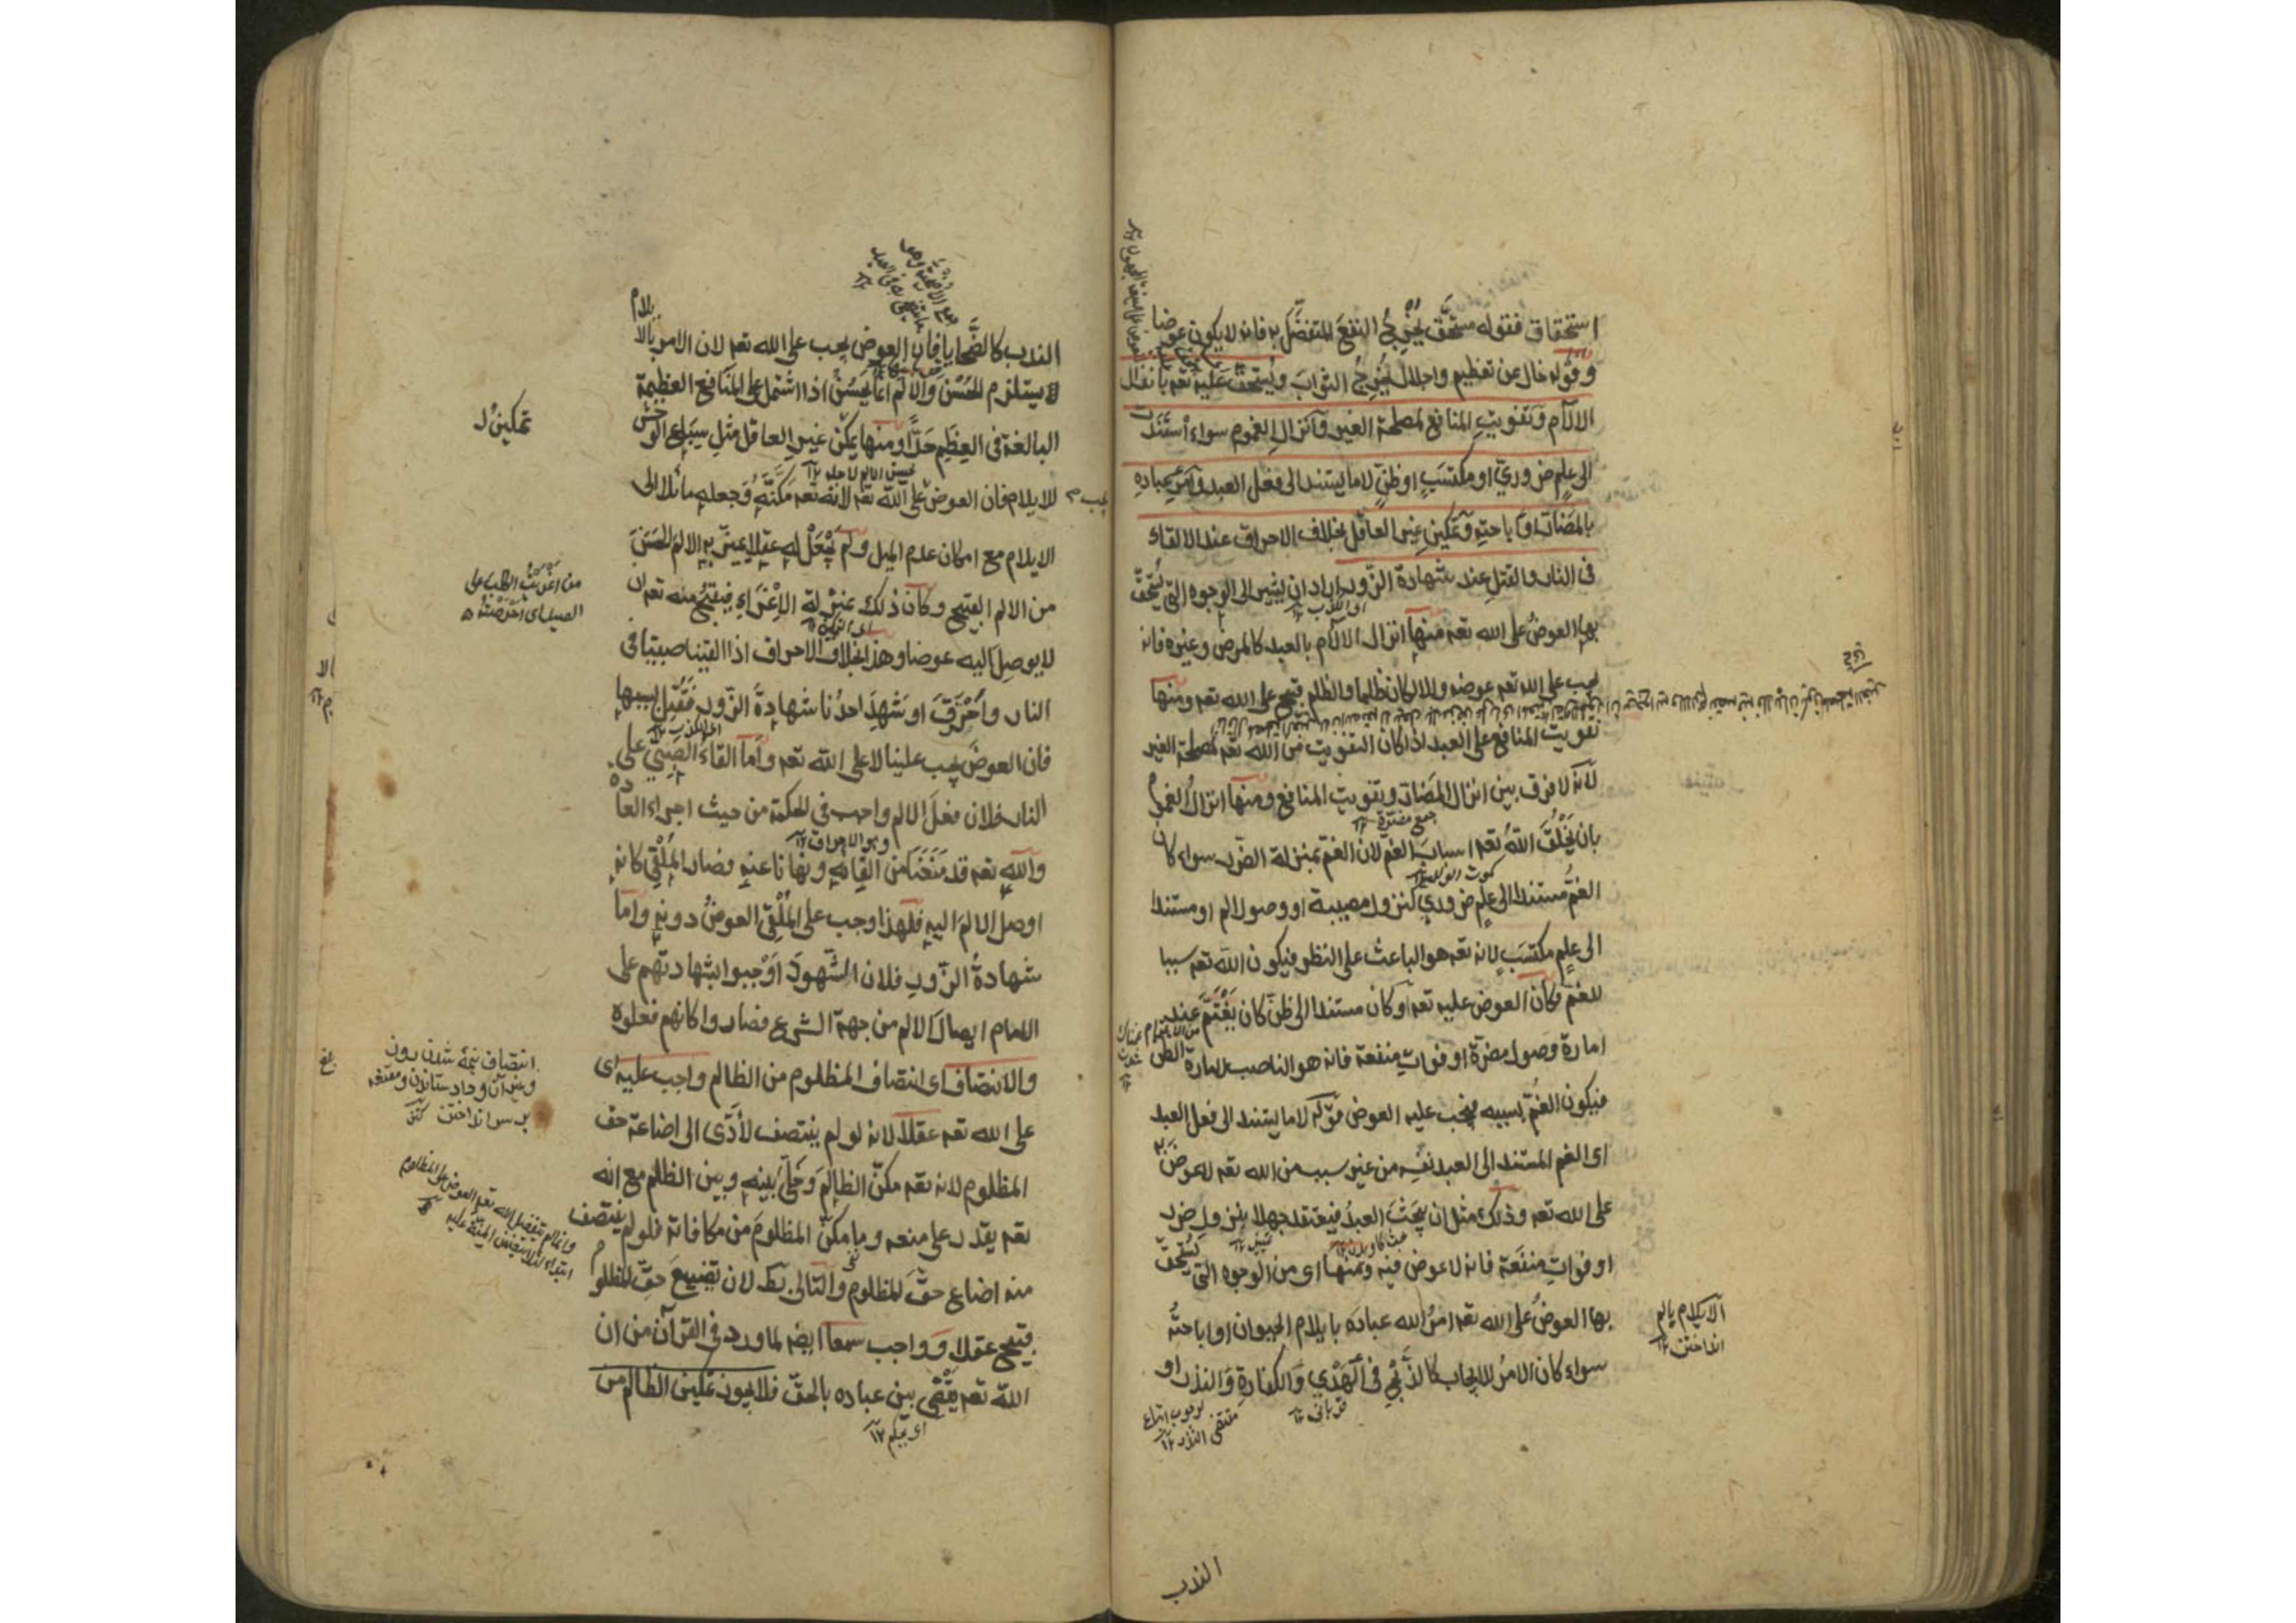 استحقاق فقوله مستحق يُخرِجُ النفعَ المتفضَّل به فانه لا يكون عوضا
وقوله خال عن تعظيم واجلال يُخرِجُ الثوابَ ويُستحقّ عليه تعه بانزال
الالآم وتفويتِ المنافع لمصلحة الغير وانزالِ الغموم سواء استندت
الى علمٍ ضروريّ او مكتسَبٍ او ظنٍّ لا ما يستند الى فعل العبد وامرِ عباده
بالمضارّ او اباحتِه وتمكينِ غيرِ العاقل بخلاف الاحراق عند الالقاء
فى النار والقتل عند شهادة الزور اراد ان يشير الى الوجوه التى يُستحقّ
بها العوضُ على الله تعه منها انزال الالآم بالعبد كالمرض وغيره فانه
يجب على الله تعه عوضه والا لكان ظلما والظلم قبيح على الله تعه ومنها
تفويت المنافع على العبد اذا كان التفويت من الله تعه لمصلحة الغير
لانه لا فرق بين انزال المضارّ وتفويت المنافع ومنها انزال الغموم
جمع مضرّة ١٢
بان يَخْلُقَ اللّهُ تعه اسبابَ الغم لان الغم بمنزلة الضرر سواء كان
كموت الولد ١٢
الغمّ مستندا الى علمٍ ضروريّ كنزول مصيبة او وصول الم او مستندا
الى علمٍ مكتسَبٍ لانه تعه هو الباعث على النظر فيكون الله تعه سببا
للغم فكان العوض عليه تعه او كان مستندا الى ظنّ كان يَغْتَمَّ عند
امارة وصول مضرّة او فوات منفعة فانه هو الناصب لامارة الظن
فيكون الغمّ بسببه فيجب عليه العوض قوله لا ما يستند الى فعل العبد
اى الغم المستند الى العبد نفسه من غير سبب من الله تعه لا عوضَ
على الله تعه وذلك مثل ان يبحثَ العبدُ فيعتقد جهلا بنزول ضرر
او فواتِ منفعة فانه لا عوض فيه ومنها اى من الوجوه التى يُستحقّ
بها العوضُ على الله تعه امرُ الله عبادَه بايلام الحيوان او اباحتُه
الايلام يالم
انداختن ١٢
سواء كان الامرُ للايجاب كالذَّبْحِ فى الهَدْيِ والكفارةِ والنذر او
قربانى ١٢
لوجوب اتباع
مقتضى النذر ١٢
الندب
الندب كالضّحايا فان العوض يجب على الله تعه لان الامر بالايلام
يستلزم الحُسْنَ والالم انما يَحسُنُ اذا اشتمل على المنافع العظيمة
البالغة فى العِظَمِ حَدًّا ومنها تمكين غيرِ العاقل مثلِ سباع الوحش
تمكين
للايلام فان العوض على الله تعه لانه تعه مَكَّنَه وجعله مائلا الى
الايلام مع امكان عدم الميل ولم يَجْعَلْ له عقلا يميّز به الالم الحَسَنَ
من الالم القبيح وكان ذلك بمنزلة الإغْرَاءِ فيقبُحُ منه تعه ان
من اغريتُ الكلب على
الصيد اى احرضتُه
لا يوصِلَ اليه عوضا وهذا بخلاف الاحراق اذا القينا صبيّا فى
النار واحْرَقَ او شَهِدَ احدُنا شهادةَ الزور فقُتِل بسببها
فان العوضَ يجب علينا لا على الله تعه واما القاء الصبيّ على
النار فلان فعلَ الالم واجب فى الحكمة من حيث اجراء العادة
وهو الاحراق ١٢
والله تعه قد مَنَعَنا من القائه ونهانا عنه فصار المُلْقِى كانه
اوصل الالم اليه فلهذا وجب على المُلْقِى العوضُ دونه واما
شهادةُ الزورِ فلان الشهودَ اَوْجَبوا بشهادتهم على
الامام ايصال الالم من جهة الشرع فصاروا كانهم فعلوه
والانتصاف اى انتصاف المظلوم من الظالم واجب عليه اى
على الله تعه عقلا لانه لو لم ينتصف لادّى الى اضاعة حق
المظلوم لانه تعه مكّن الظالمَ وخَلّى بينه وبين الظلم مع انه
تعه يقدر على منعه وما مكّن المظلومَ من مكافاته فلو لم ينتصف
منه اضاع حقَّ المظلوم والتالى بط لان تضييعَ حقِّ المظلوم
قبيح عقلا وواجب سمعا ايضه لما ورد فى القرآن من ان
الله تعه يَقْضِى بين عباده بالحقّ فلا يجوز تمكين الظالم من
اى يحكم ١٢